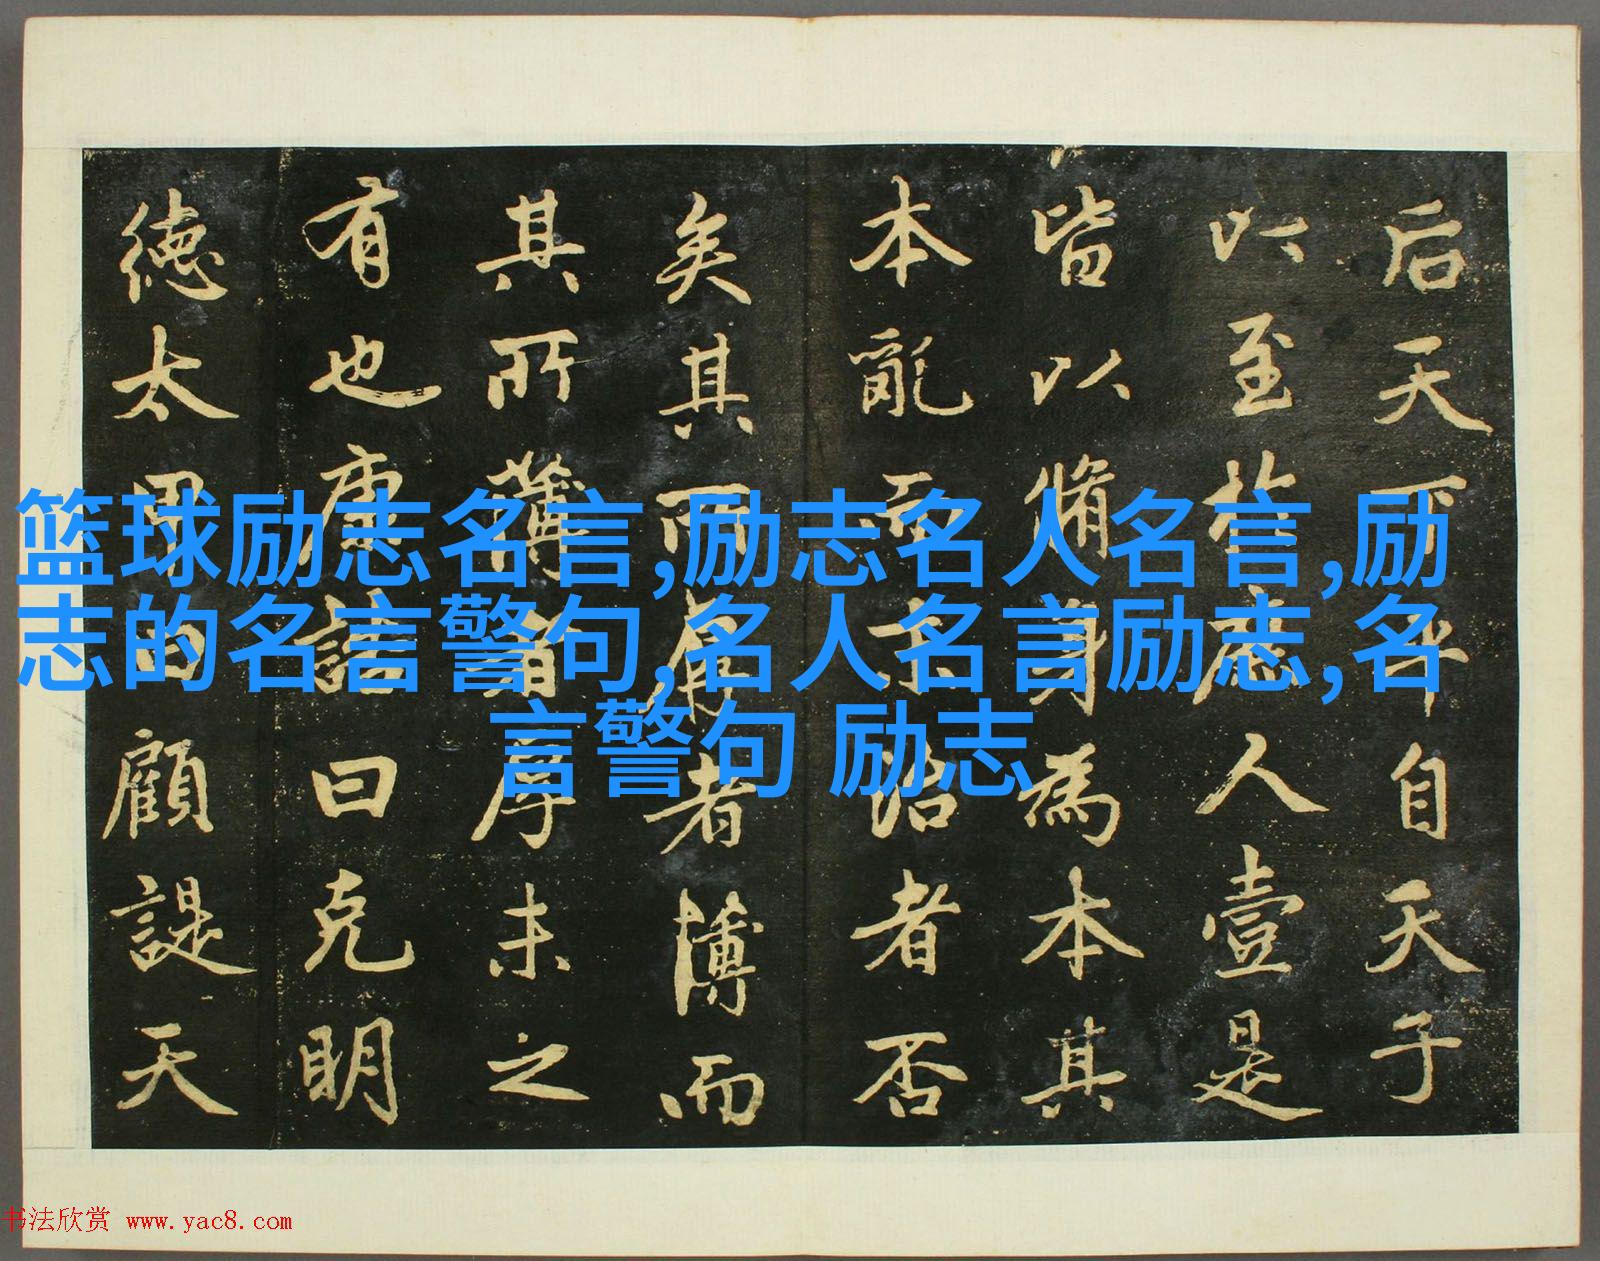 后天下平自天子
以至於庶人壹是
皆以脩身為本其
本亂而末治者否
矣其所厚者薄而
其所薄者厚未之
有也康誥曰克明
德太甲曰顧諟天
篮球励志名言,励志名人名言,励
志的名言警句,名人名言励志,名
言警句 励志
书法欣赏 www.yac8.com